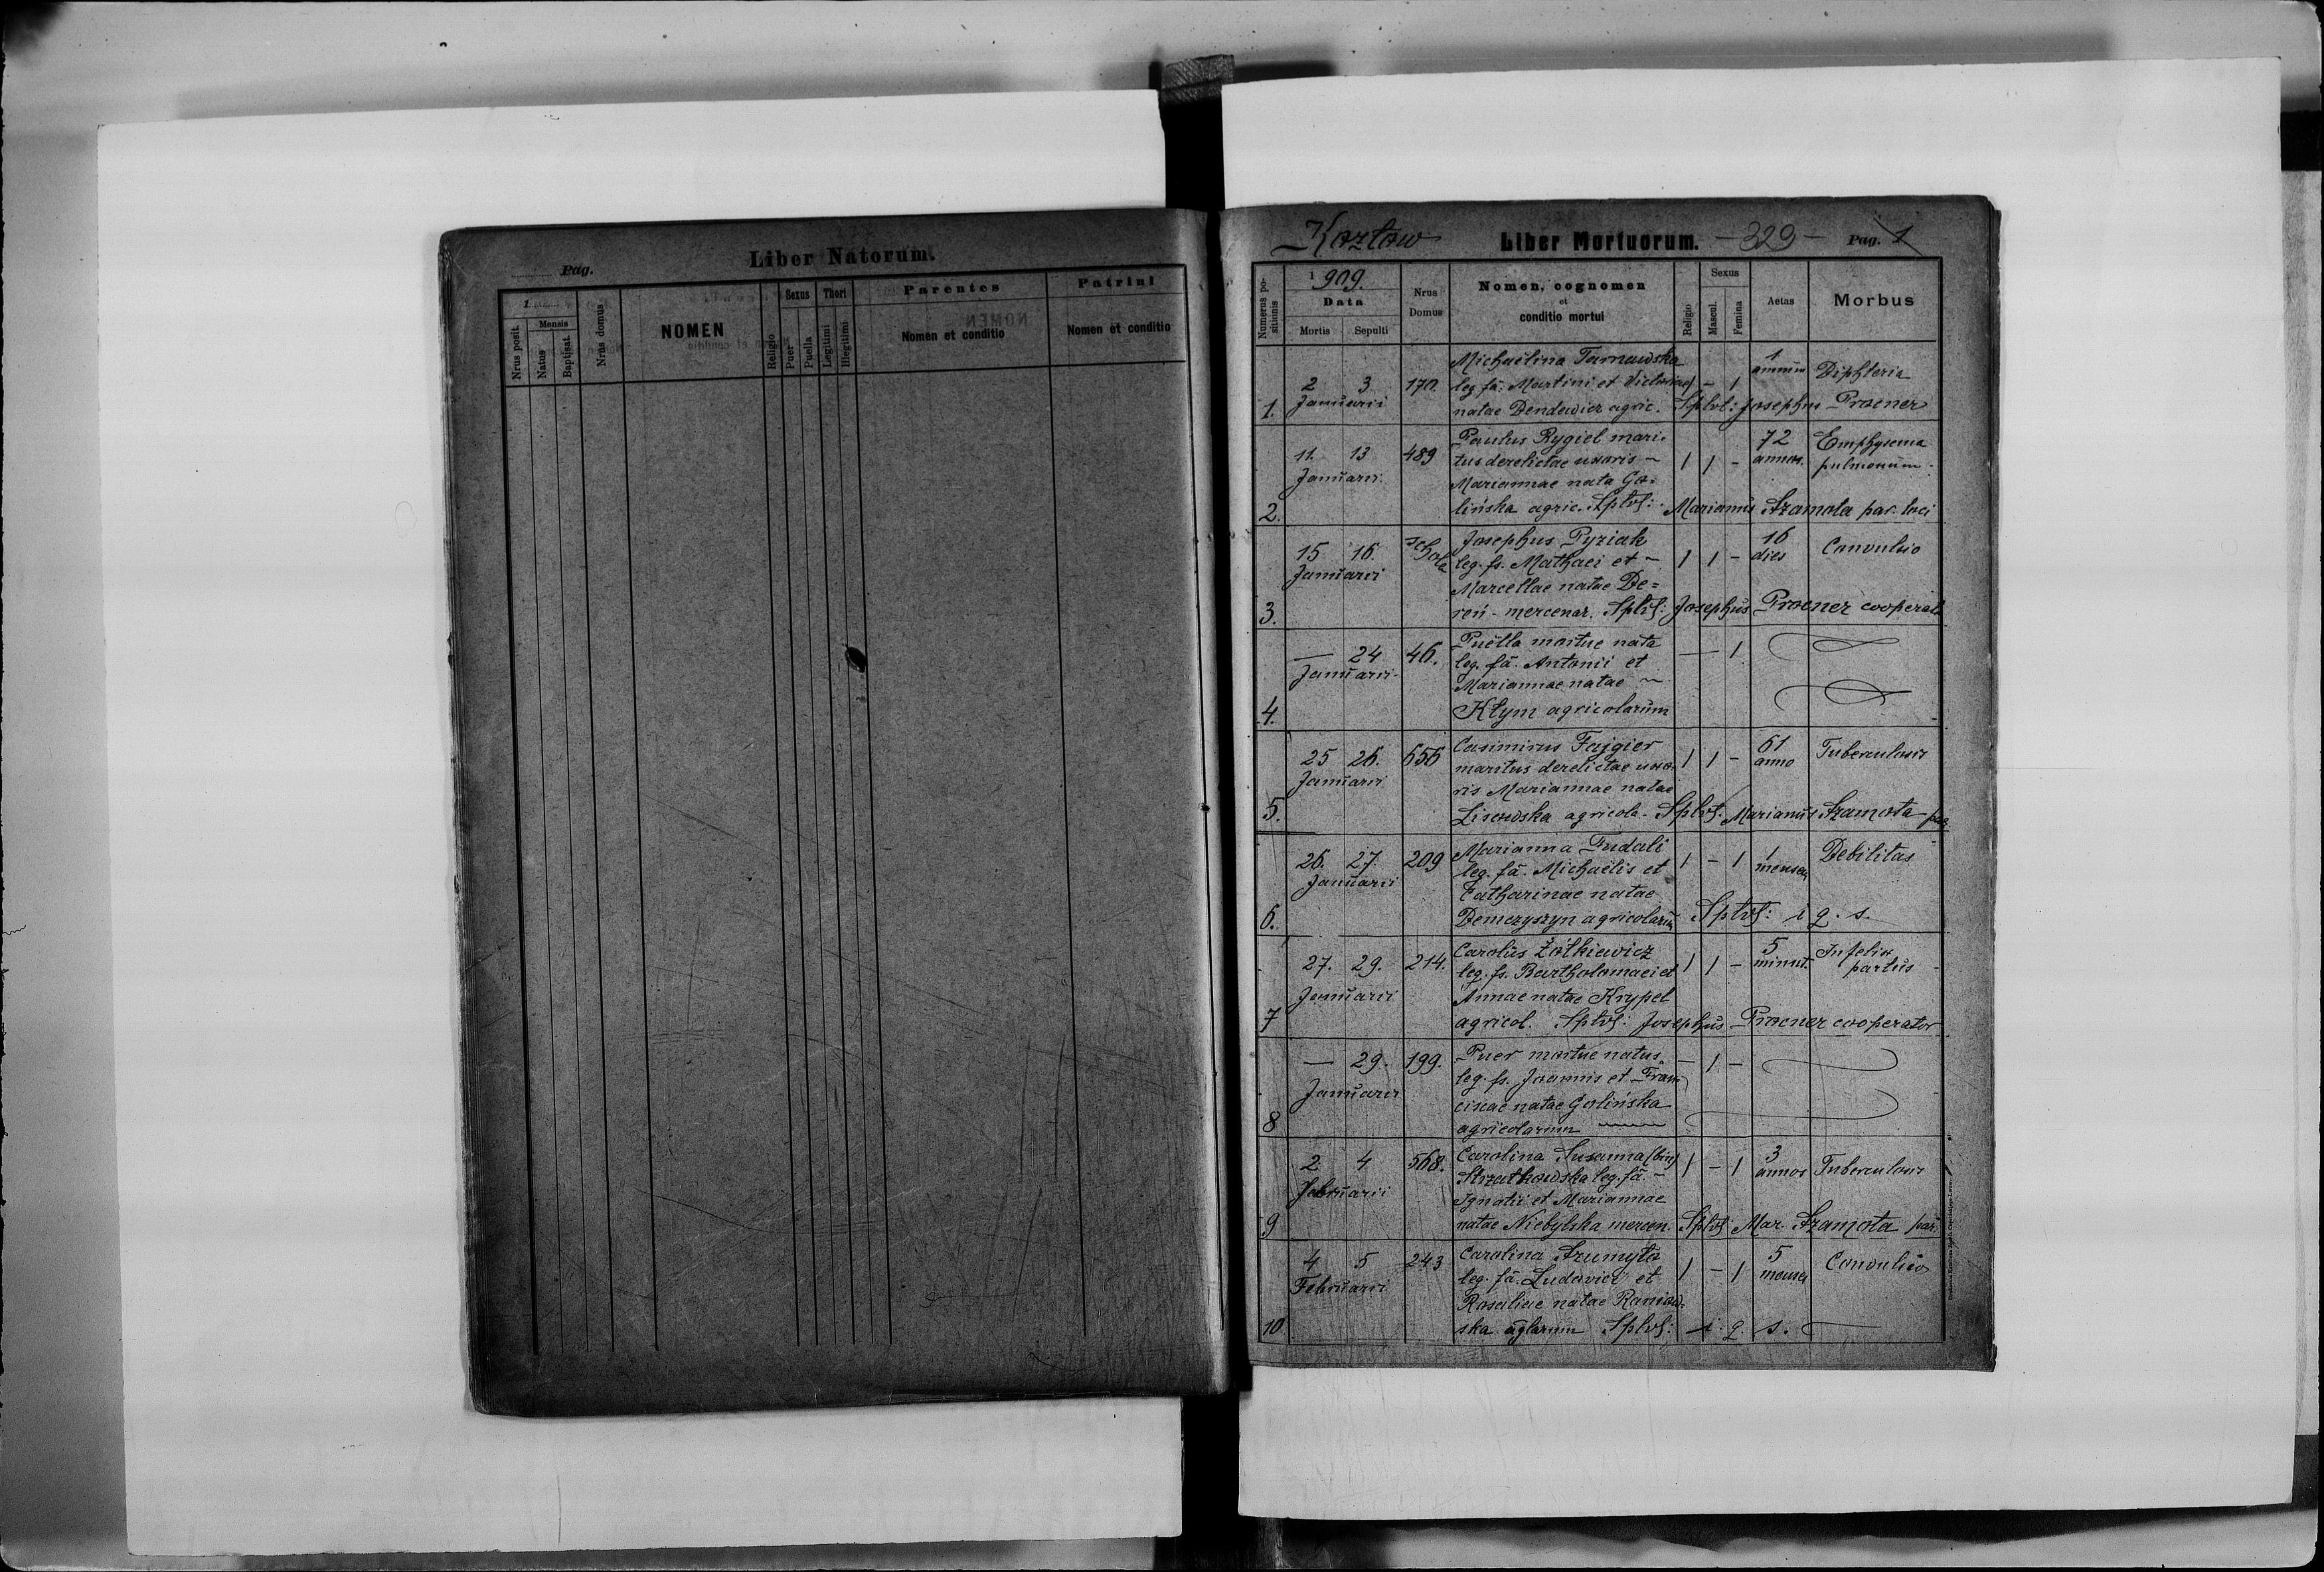 Pag.
Liber Natorum.
1
Nrus posit.
Mensis
Natus
Baptisat.
Nrus domus
NOMEN
Religio
Sexus
Puer
Puella
Thori
Legitimi
Illegitimi
Parentes
Nomen et conditio
Patrini
Nomen et conditio
Kozłow
Liber Mortuorum.
- 329 -
Pag. 1
Numerus positionis
1909.
Data
Mortis
Sepulti
Nrus Domus
Nomen, cognomen
et
conditio mortui
Religio
Sexus
Mascul.
Femina
Aetas
Morbus
1. 2 3 Januarii 170.
Michaëlina Tarnawska
leg. fa. Martini et Victoriae
natae Dendewicz agric.
1 - 1
1 annum
Diphteria
Splvf: Josephus Procner
2. 11. 13 Januarii 489
Paulus Rygiel mari-
tus derelictae uxoris -
Mariannae nata Go-
lińska agric. Splvf: Marianus Szamota par. loci
1 1 -
72 annor.
Emphysema
pulmonum
3. 15 16. Januarii schola
Josephus Pyziak
leg. fs. Mathaei et -
Marcellae natae De=
reń - mercenar. Splvf: Josephus Procner cooperat.
1 1 -
16 dies
Convulsio
4. — 24 Januarii 46.
Puella mortue nata
leg. fa. Antonii et
Mariannae natae ~
Kłym agricolarum
— — 1
5. 25 26. Januarii 656
Casimirus Fajgier
maritus derelictae uxo-
ris Mariannae natae
Lisowska agricola - Splvf. Marianus Szamota par.
1 1 -
61 anno
Tuberculosis
6. 26. 27. Januarii 209
Marianna Fudali
leg. fa. Michaëlis et
Catharinae natae
Demczyszyn agricolarum Splvf: i. q. s.
1 - 1
1 mensem
Debilitas
7 27. 29. Januarii 214.
Carolus Żółkiewicz
leg. fs. Bartholomaei et
Annae natae Krypel
agricol. Splvf: Josephus Procner cooperator
1 1 -
5 minut.
Infelix
partus
8 — 29. Januarii 199.
Puer mortue natus
leg. fs. Joannis et Fran-
ciscae natae Golińska
agricolarum
— 1 -
9 2 4 Februarii 568.
Carolina Susanna (bin)
Strzałkowska leg. fa. -
Ignatii et Mariannae
natae Niebylska mercen. Splvf: Mar. Szamota par.
1 - 1
3 annos
Tuberculosis
10 4 5 Februarii 243
Carolina Szumyta
leg. fa. Ludovici et
Rosaliae natae Raniow-
ska aglarum Splvf: i. q. s.
1 - 1
5 menses
Convulsio